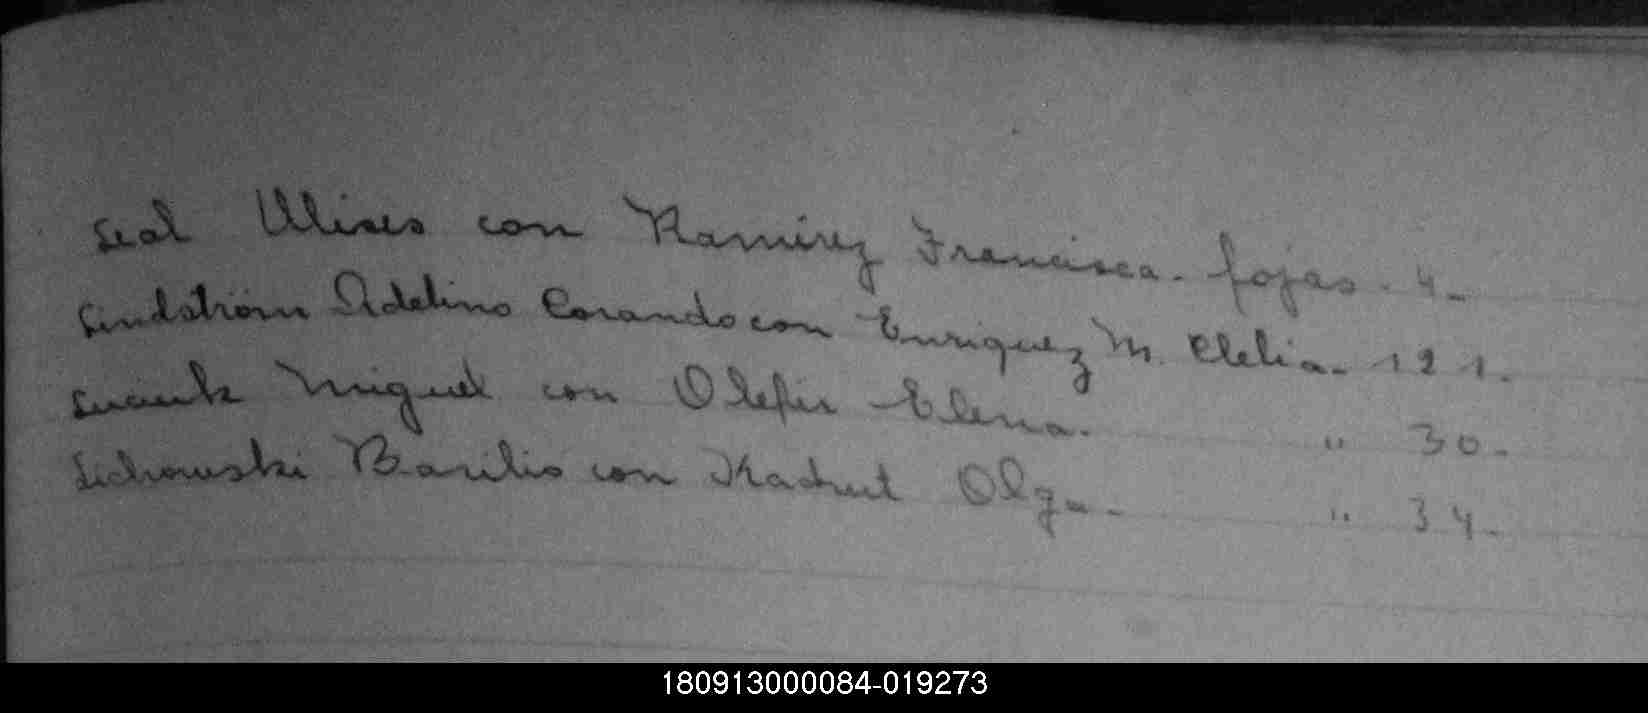 Leal Ulises con Ramirez Francisca. fojas. 4_
Lindström Adelino Corando con Enriquez M. Clelia. 121.
Miguel con Olefir Elena. " 30.
Lichowski Basilio con Olga. " 34.
180913000084-019273